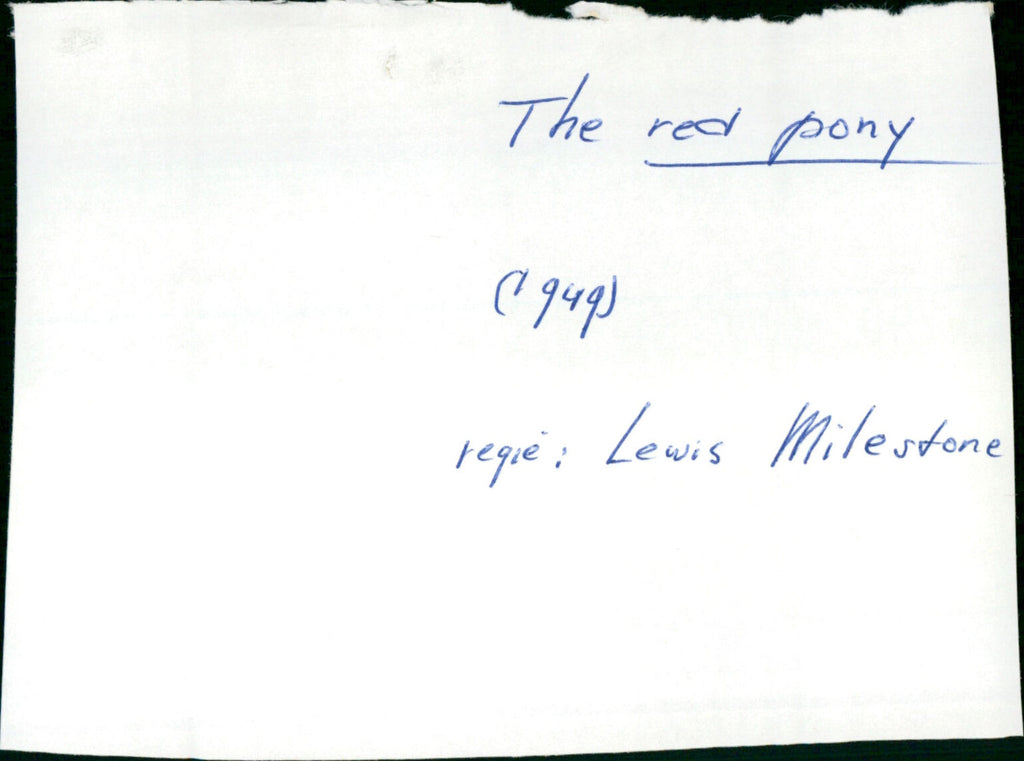 The red pony
(1949)
regie: Lewis Milestone